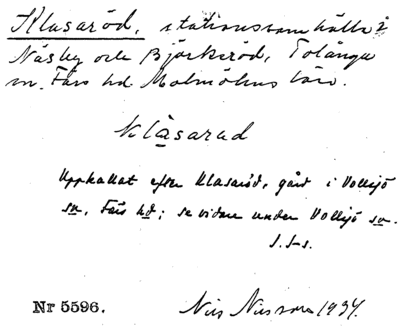 Klasaröd, stationssamhälle i
Näsby och Björkeröd, Tolånga
sn. Färs hd. Malmöhus län.
klasarad
Uppkallat efter Klasaröd, gård i Vollsjö
sn, Färs hd; se vidare under Vollsjö sn.
S. I-s.
Nr 5596.
Nils Nilsson 1934.